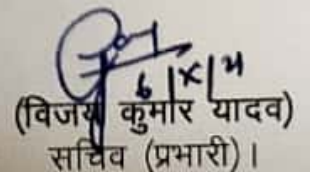 (विजय कुमार यादव)
सचिव (प्रभारी)।